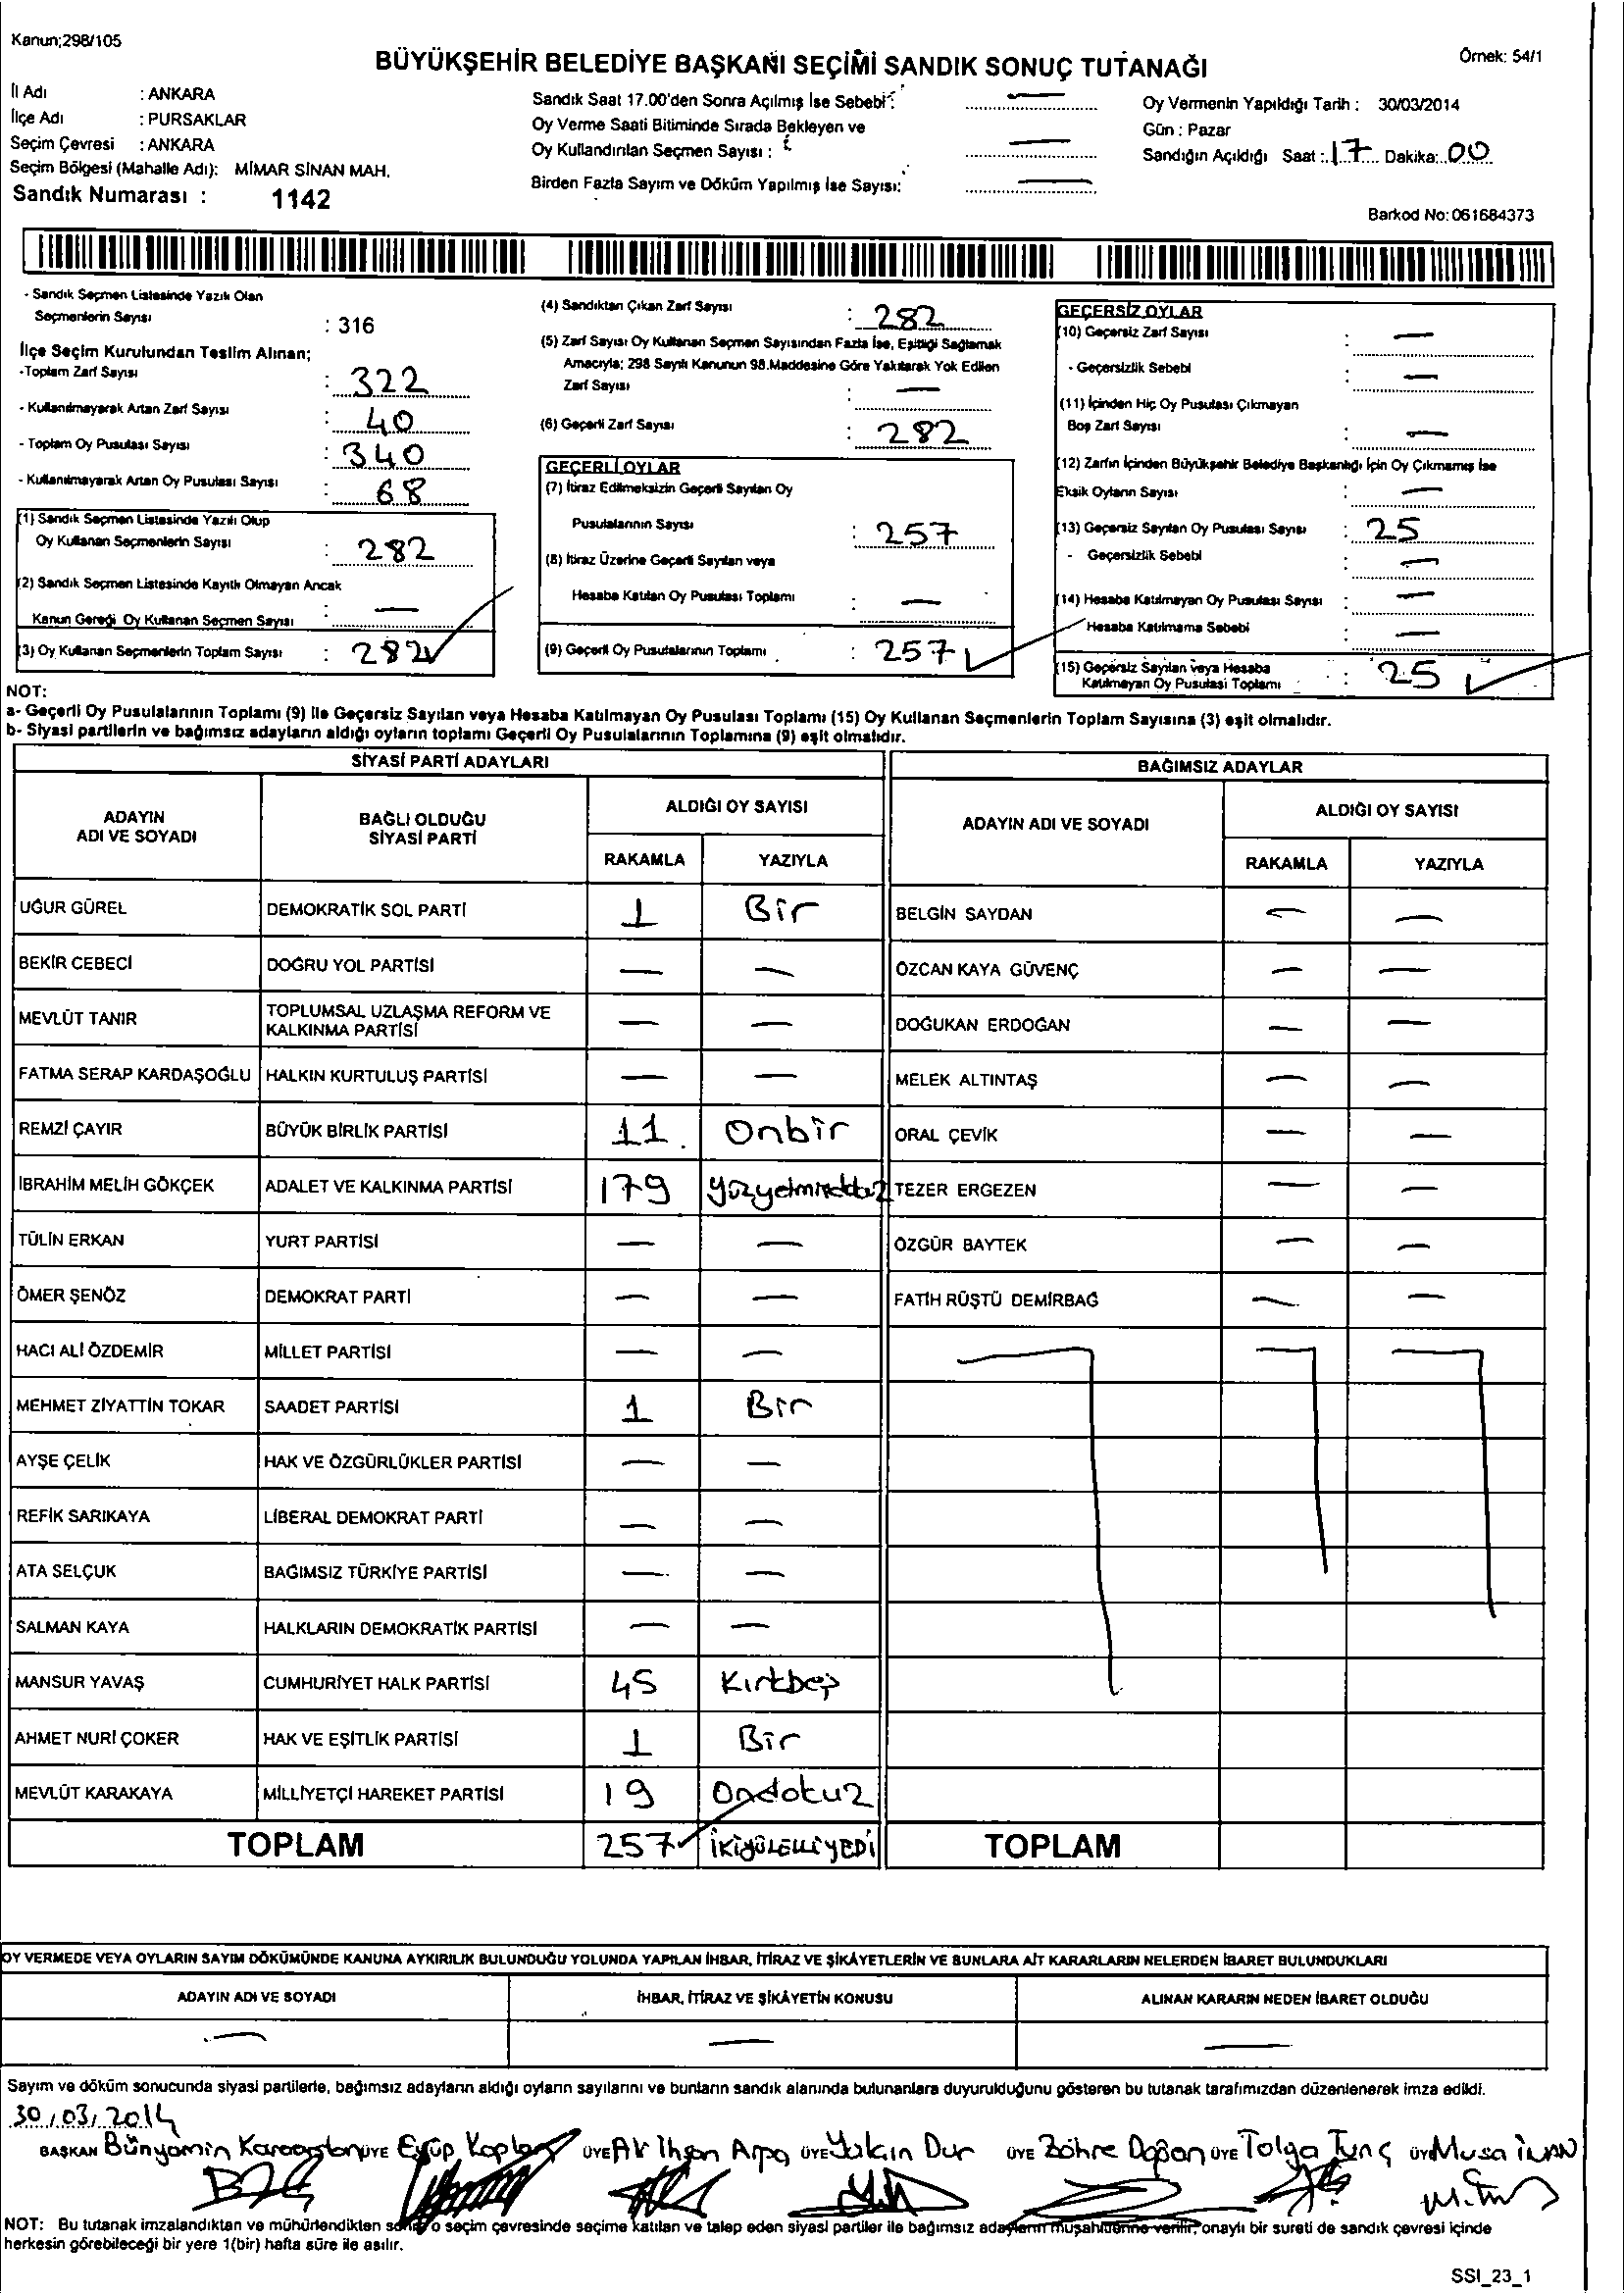 Kanun;298/105
BÜYÜKŞEHİR BELEDİYE BAŞKANI SEÇİMİ SANDIK SONUÇ TUTANAĞI
Örnek: 54/1
İl Adı : ANKARA
İlçe Adı : PURSAKLAR
Seçim Çevresi : ANKARA
Seçim Bölgesi (Mahalle Adı): MİMAR SİNAN MAH.
Sandık Numarası : 1142
Sandık Saat 17.00'den Sonra Açılmış İse Sebebi : —
Oy Verme Saati Bitiminde Sırada Bekleyen ve
Oy Kullandırılan Seçmen Sayısı : —
Birden Fazla Sayım ve Döküm Yapılmış İse Sayısı: —
Oy Vermenin Yapıldığı Tarih : 30/03/2014
Gün : Pazar
Sandığın Açıldığı Saat : 17 Dakika: 00
Barkod No: 061684373
- Sandık Seçmen Listesinde Yazılı Olan
Seçmenlerin Sayısı : 316
İlçe Seçim Kurulundan Teslim Alınan;
-Toplam Zarf Sayısı : 322
- Kullanılmayarak Artan Zarf Sayısı : 40
- Toplam Oy Pusulası Sayısı : 340
- Kullanılmayarak Artan Oy Pusulası Sayısı : 68
(1) Sandık Seçmen Listesinde Yazılı Olup
Oy Kullanan Seçmenlerin Sayısı : 282
(2) Sandık Seçmen Listesinde Kayıtlı Olmayan Ancak
Kanun Gereği Oy Kullanan Seçmen Sayısı : —
(3) Oy Kullanan Seçmenlerin Toplam Sayısı : 282
(4) Sandıktan Çıkan Zarf Sayısı : 282
(5) Zarf Sayısı Oy Kullanan Seçmen Sayısından Fazla İse, Eşitliği Sağlamak
Amacıyla; 298 Sayılı Kanunun 98.Maddesine Göre Yakılarak Yok Edilen
Zarf Sayısı : —
(6) Geçerli Zarf Sayısı : 282
GEÇERLİ OYLAR
(7) İtiraz Edilmeksizin Geçerli Sayılan Oy
Pusulalarının Sayısı : 257
(8) İtiraz Üzerine Geçerli Sayılan veya
Hesaba Katılan Oy Pusulası Toplamı : —
(9) Geçerli Oy Pusulalarının Toplamı : 257
GEÇERSİZ OYLAR
(10) Geçersiz Zarf Sayısı : —
- Geçersizlik Sebebi : —
(11) İçinden Hiç Oy Pusulası Çıkmayan
Boş Zarf Sayısı : —
(12) Zarfın İçinden Büyükşehir Belediye Başkanlığı İçin Oy Çıkmamış İse
Eksik Oyların Sayısı : —
(13) Geçersiz Sayılan Oy Pusulası Sayısı : 25
- Geçersizlik Sebebi : —
(14) Hesaba Katılmayan Oy Pusulası Sayısı : —
Hesaba Katılmama Sebebi : —
(15) Geçersiz Sayılan veya Hesaba
Katılmayan Oy Pusulası Toplamı : 25
NOT:
a- Geçerli Oy Pusulalarının Toplamı (9) ile Geçersiz Sayılan veya Hesaba Katılmayan Oy Pusulası Toplamı (15) Oy Kullanan Seçmenlerin Toplam Sayısına (3) eşit olmalıdır.
b- Siyasi partilerin ve bağımsız adayların aldığı oyların toplamı Geçerli Oy Pusulalarının Toplamına (9) eşit olmalıdır.
SİYASİ PARTİ ADAYLARI
ADAYIN ADI VE SOYADI BAĞLI OLDUĞU SİYASİ PARTİ ALDIĞI OY SAYISI
RAKAMLA YAZIYLA
UĞUR GÜREL DEMOKRATİK SOL PARTİ 1 Bir
BEKİR CEBECİ DOĞRU YOL PARTİSİ — —
MEVLÜT TANIR TOPLUMSAL UZLAŞMA REFORM VE KALKINMA PARTİSİ — —
FATMA SERAP KARDAŞOĞLU HALKIN KURTULUŞ PARTİSİ — —
REMZİ ÇAYIR BÜYÜK BİRLİK PARTİSİ 11 Onbir
İBRAHİM MELİH GÖKÇEK ADALET VE KALKINMA PARTİSİ 179
TÜLİN ERKAN YURT PARTİSİ — —
ÖMER ŞENÖZ DEMOKRAT PARTİ — —
HACI ALİ ÖZDEMİR MİLLET PARTİSİ — —
MEHMET ZİYATTİN TOKAR SAADET PARTİSİ 1 Bir
AYŞE ÇELİK HAK VE ÖZGÜRLÜKLER PARTİSİ — —
REFİK SARIKAYA LİBERAL DEMOKRAT PARTİ — —
ATA SELÇUK BAĞIMSIZ TÜRKİYE PARTİSİ — —
SALMAN KAYA HALKLARIN DEMOKRATİK PARTİSİ — —
MANSUR YAVAŞ CUMHURİYET HALK PARTİSİ 45 Kırkbeş
AHMET NURİ ÇOKER HAK VE EŞİTLİK PARTİSİ 1 Bir
MEVLÜT KARAKAYA MİLLİYETÇİ HAREKET PARTİSİ 19 Ondokuz
TOPLAM 257
BAĞIMSIZ ADAYLAR
ADAYIN ADI VE SOYADI ALDIĞI OY SAYISI
RAKAMLA YAZIYLA
BELGİN SAYDAN — —
ÖZCAN KAYA GÜVENÇ — —
DOĞUKAN ERDOĞAN — —
MELEK ALTINTAŞ — —
ORAL ÇEVİK — —
TEZER ERGEZEN — —
ÖZGÜR BAYTEK — —
FATİH RÜŞTÜ DEMİRBAĞ — —
TOPLAM
OY VERMEDE VEYA OYLARIN SAYIM DÖKÜMÜNDE KANUNA AYKIRILIK BULUNDUĞU YOLUNDA YAPILAN İHBAR, İTİRAZ VE ŞİKÂYETLERİN VE BUNLARA AİT KARARLARIN NELERDEN İBARET BULUNDUKLARI
ADAYIN ADI VE SOYADI İHBAR, İTİRAZ VE ŞİKÂYETİN KONUSU ALINAN KARARIN NEDEN İBARET OLDUĞU
— — —
Sayım ve döküm sonucunda siyasi partilerle, bağımsız adayların aldığı oyların sayılarını ve bunların sandık alanında bulunanlara duyurulduğunu gösteren bu tutanak tarafımızdan düzenlenerek imza edildi.
30/03/2014
BAŞKAN Bünyamin Karaaslan ÜYE Eyüp Kaplan ÜYE Ali İhsan Arpa ÜYE Yalçın Dur ÜYE Zöhre Doğan ÜYE Tolga Tunç ÜYE Musa İNAN
NOT: Bu tutanak imzalandıktan ve mühürlendikten sonra o seçim çevresinde seçime katılan ve talep eden siyasi partiler ile bağımsız adayların müşahitlerine verilir, onaylı bir sureti de sandık çevresi içinde
herkesin görebileceği bir yere 1(bir) hafta süre ile asılır.
SSI_23_1